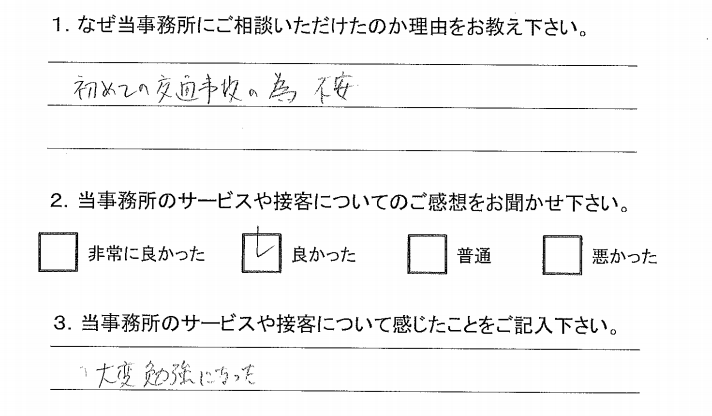 1. なぜ当事務所にご相談いただけたのか理由をお教え下さい。
初めての交通事故の為 不安
2. 当事務所のサービスや接客についてのご感想をお聞かせ下さい。
非常に良かった 良かった 普通 悪かった
3. 当事務所のサービスや接客について感じたことをご記入下さい。
大変勉強になった